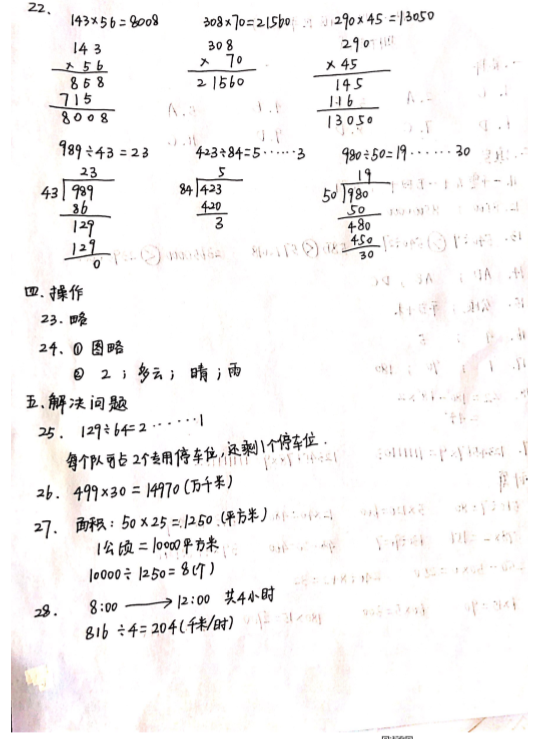 22.
143×56=8008 308×70=21560 290×45=13050
143 308 290
× 56 × 70 × 45
858 21560 145
715 116
8008 13050
989÷43=23 423÷84=5……3 980÷50=19……30
23 5 19
43 989 84 423 50 980
86 420 50
129 3 480
129 450
0 30
四、操作
23. 略
24. ① 图略
② 2；多云；晴；雨
五、解决问题
25. 129÷64=2……1
每个队可占2个专用停车位，还剩1个停车位.
26. 499×30=14970(万千米)
27. 面积：50×25=1250(平方米)
1公顷=10000平方米
10000÷1250=8(个)
28. 8:00 → 12:00 共4小时
816÷4=204(千米/时)